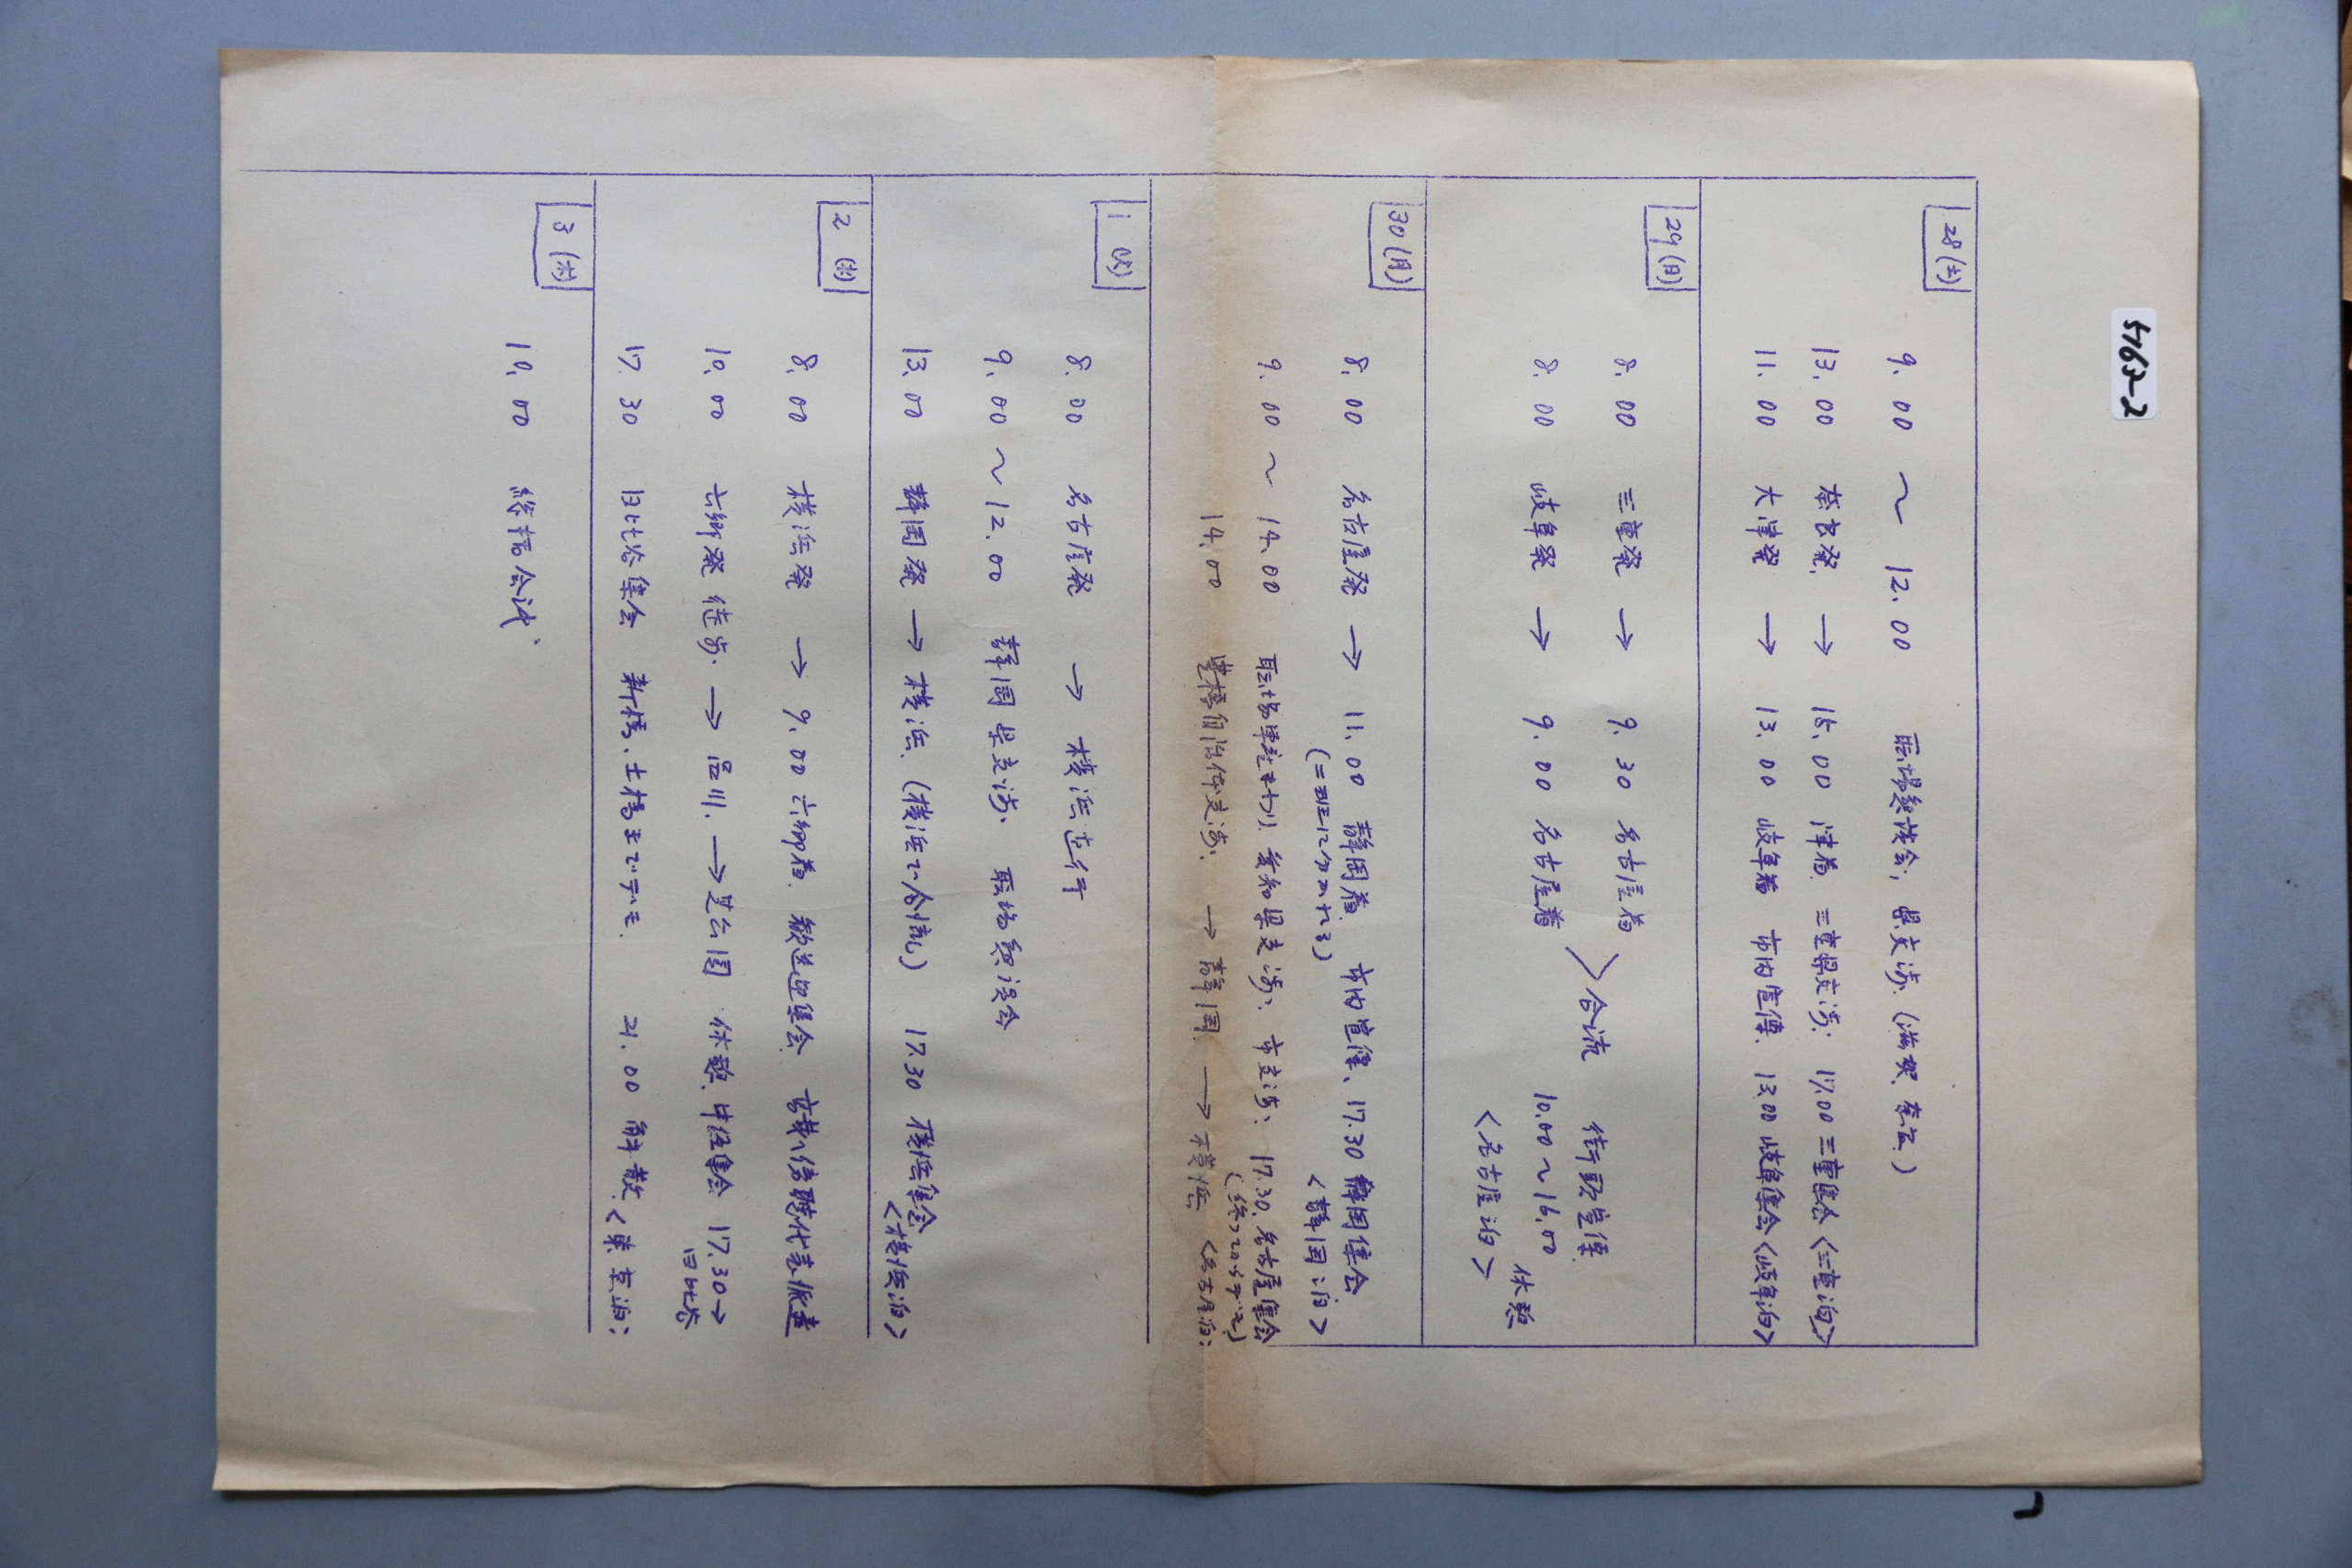 5763-2
28(土)
9.00 ～ 12.00 職場懇談会、県交渉、(滋賀、奈良)
13.00 奈良発、→ 15.00 津着 三重県交渉、17.00 三重集会〈三重泊〉
11.00 大津発 → 13.00 岐阜着 市内宣伝、13.00 岐阜集会〈岐阜泊〉
29(日)
8.00 三重発 → 9.30 名古屋着
8.00 岐阜発 → 9.00 名古屋着
合流
街頭宣伝
10.00～16.00 休憩
〈名古屋泊〉
30(月)
8.00 名古屋発 → 11.00 静岡着、市内宣伝、17.30 静岡集会
(二班に分かれる) 〈静岡泊〉
9.00 ～ 14.00 愛知県交渉、市交渉、17.30. 名古屋集会
14.00 豊橋自治体交渉、→ 静岡 → 横浜 〈名古屋泊〉
1(火)
8.00 名古屋発 → 横浜直行
9.00 ～ 12.00 静岡県交渉、職場懇談会
13.00 静岡発 → 横浜、(横浜で合流) 17.30 横浜集会
〈横浜泊〉
2(水)
8.00 横浜発 → 9.00 六郷着、歓送迎集会
10.00 六郷発 徒歩、→ 品川、→ 芝公園 休憩、集会 17.30→
日比谷
17.30 日比谷集会 新橋、土橋までデモ、21.00 解散、〈東京泊〉
3(木)
10.00 総括会議、